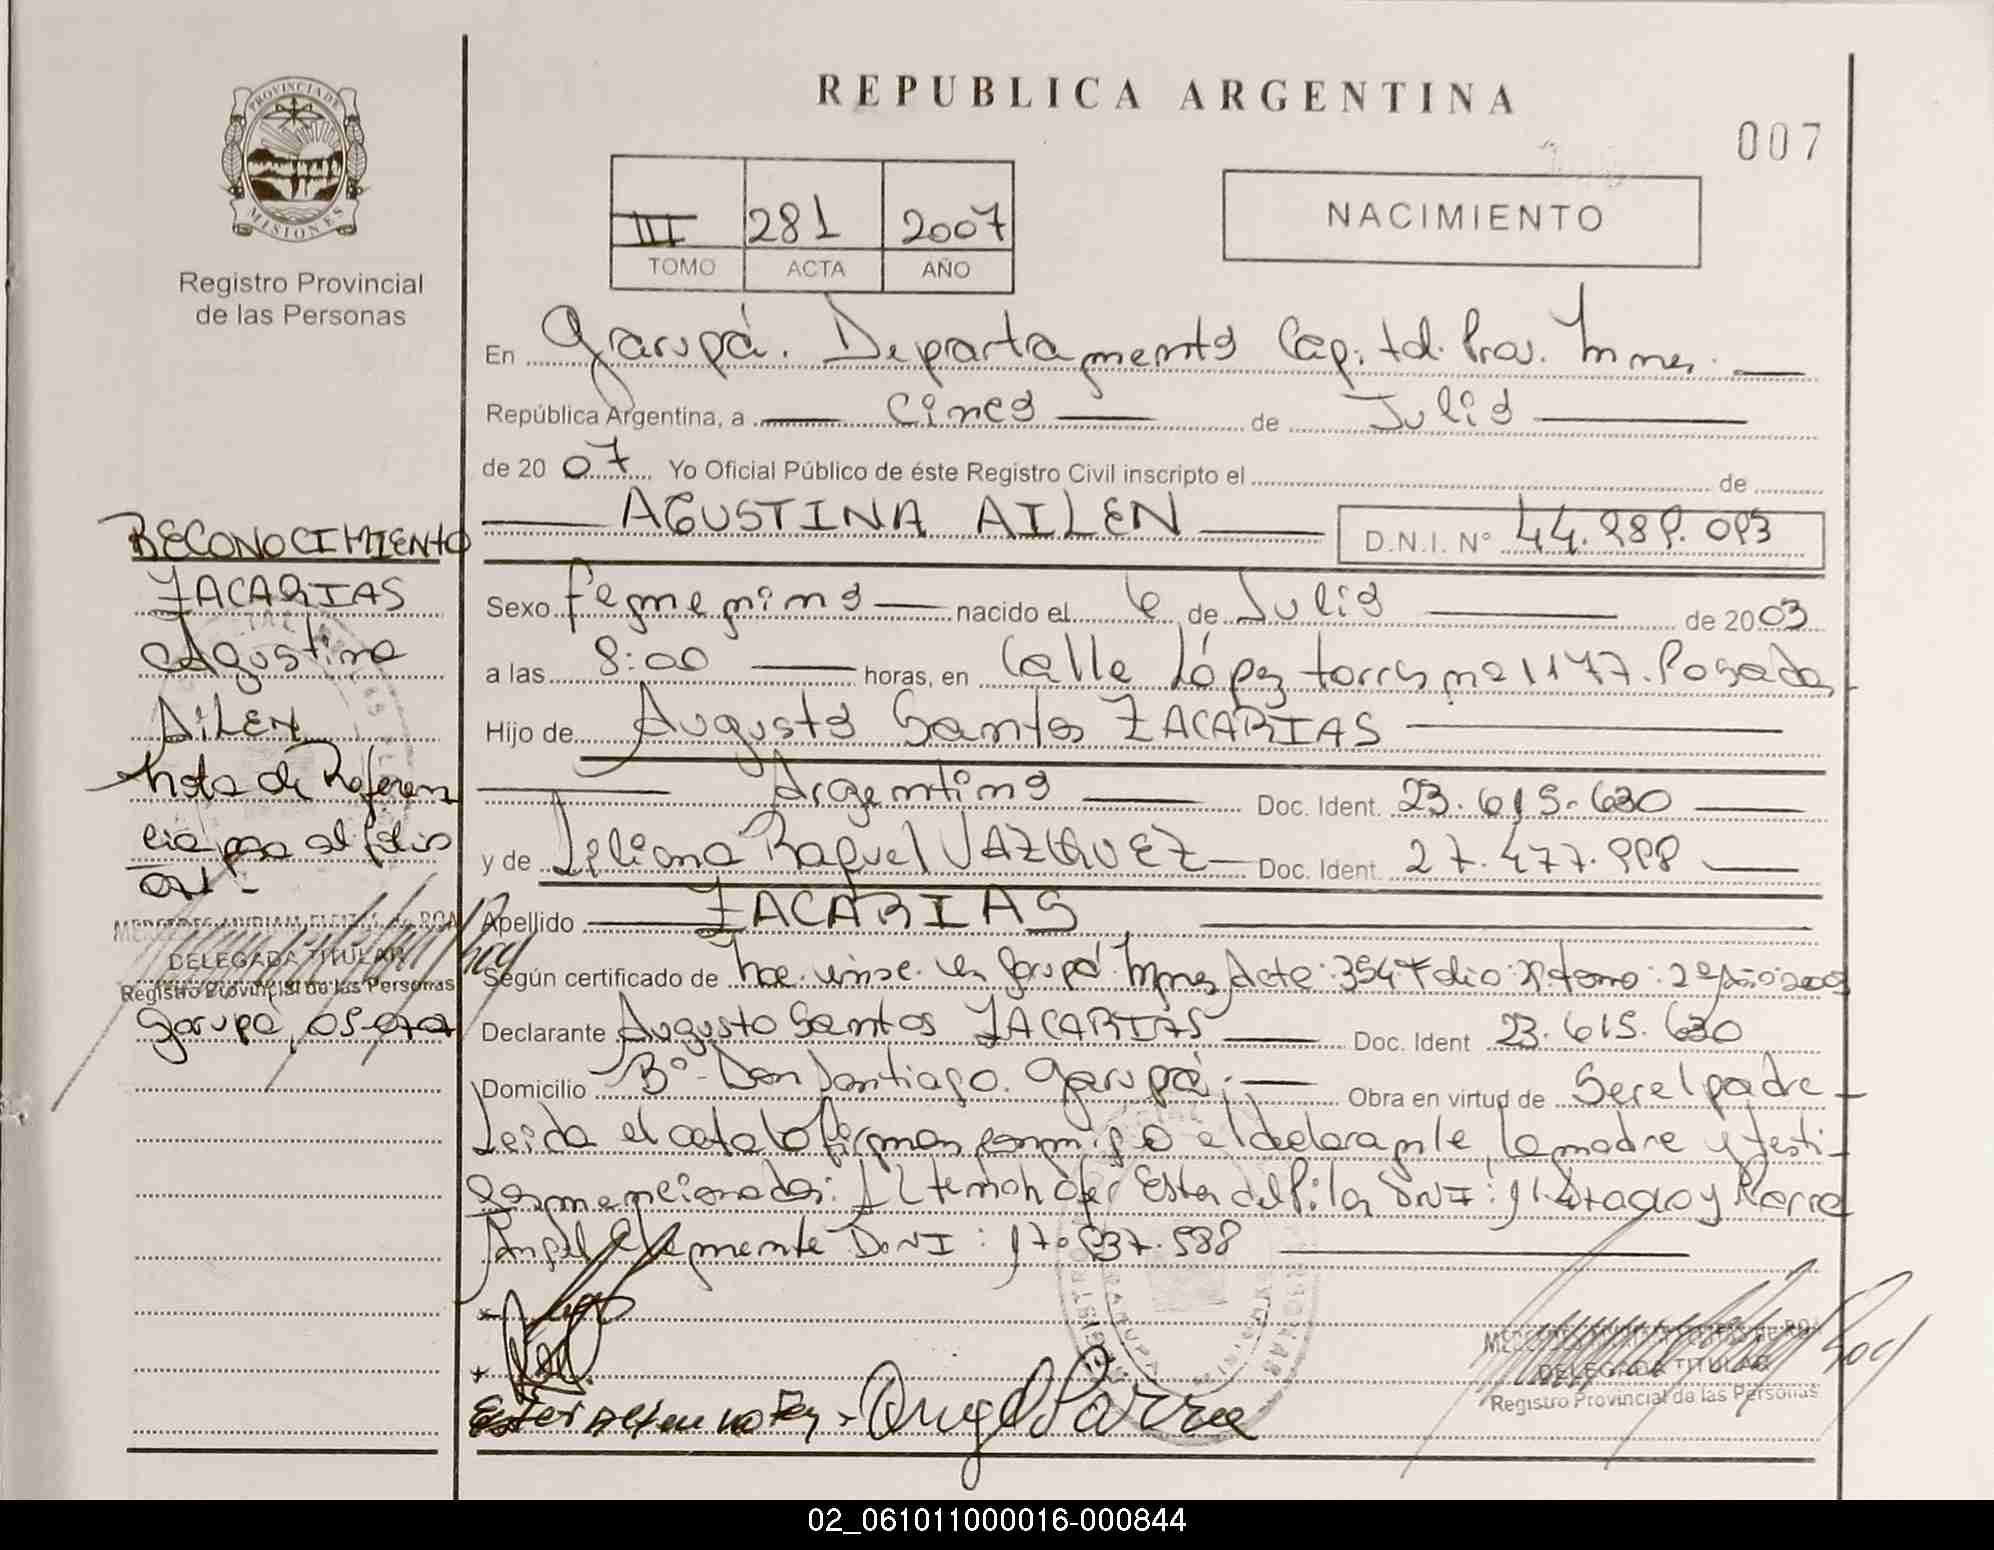 REPUBLICA ARGENTINA
007
PROVINCIA DE
MISIONES
Registro Provincial
de las Personas
III 281 2007
TOMO ACTA AÑO
NACIMIENTO
En Garupá. Departamento Capital. Prov. Mnes.
República Argentina, a cinco de Julio
de 2007 Yo Oficial Público de éste Registro Civil inscripto el de
AGUSTINA AILEN D.N.I. Nº 44.989.093
Sexo femenino nacido el 6 de Julio de 2003
a las 8:00 horas, en Calle López torres nº 1177. Posadas
Hijo de Augusto Santos ZACARIAS
Argentino Doc. Ident. 23.615.630
y de Liliana Raquel VAZQUEZ Doc. Ident. 27.477.998
Apellido ZACARIAS
Según certificado de Garupá Mnes Acta: 354 folio: tomo: 2º año 2003
Declarante Augusto Santos ZACARIAS Doc. Ident 23.615.630
Domicilio Bº Don Santiago. Garupá. Obra en virtud de Ser el padre
Leida el acta lo firman conmigo el declarante, la madre y testi
gos mencionados: Ester del Pilar DNI: y Parra
Angel Clemente D.N.I: 17.837.588
RECONOCIMIENTO
ZACARIAS
Agustina
AiLEN
Nota de Referen
cia pasa al folio
MERCEDES MYRIAM de ROA
DELEGADA TITULAR
Registro Provincial de las Personas
Garupá, 05-07-07
Angel Parra
MERCEDES de ROA
DELEGADA TITULAR
Registro Provincial de las Personas
02_061011000016-000844